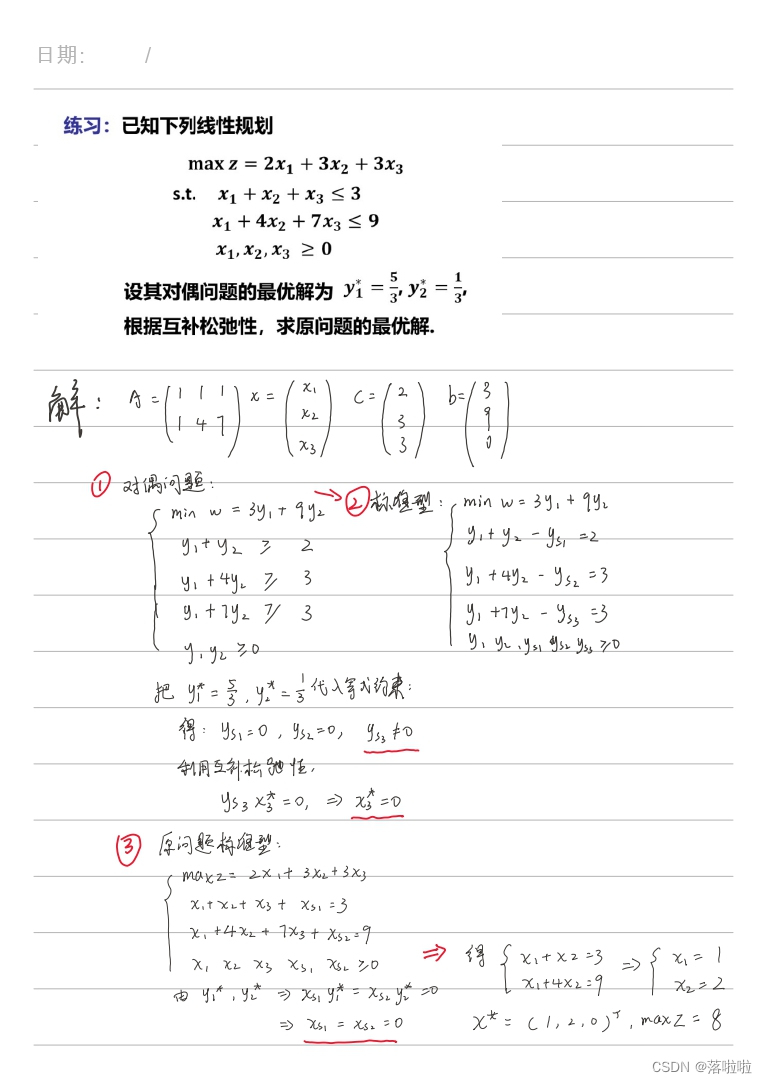 日期: /
练习：已知下列线性规划
max z = 2x₁ + 3x₂ + 3x₃
s.t. x₁ + x₂ + x₃ ≤ 3
x₁ + 4x₂ + 7x₃ ≤ 9
x₁, x₂, x₃ ≥ 0
设其对偶问题的最优解为 y₁* = 5/3, y₂* = 1/3,
根据互补松弛性，求原问题的最优解.
解: A = (1 1 1; 1 4 7) x = (x₁; x₂; x₃) C = (2; 3; 3) b = (3; 9; 0)
① 对偶问题:
min w = 3y₁ + 9y₂
y₁ + y₂ ≥ 2
y₁ + 4y₂ ≥ 3
y₁ + 7y₂ ≥ 3
y₁ y₂ ≥ 0
② 标准型:
min w = 3y₁ + 9y₂
y₁ + y₂ - yₛ₁ = 2
y₁ + 4y₂ - yₛ₂ = 3
y₁ + 7y₂ - yₛ₃ = 3
y₁ y₂, yₛ₁ yₛ₂ yₛ₃ ≥ 0
把 y₁* = 5/3, y₂* = 1/3 代入等式约束:
得: yₛ₁ = 0, yₛ₂ = 0, yₛ₃ ≠ 0
利用互补松弛性,
yₛ₃ x₃* = 0, ⇒ x₃* = 0
③ 原问题标准型:
max z = 2x₁ + 3x₂ + 3x₃
x₁ + x₂ + x₃ + xₛ₁ = 3
x₁ + 4x₂ + 7x₃ + xₛ₂ = 9
x₁ x₂ x₃ xₛ₁ xₛ₂ ≥ 0
由 y₁*, y₂* ⇒ xₛ₁ y₁* = xₛ₂ y₂* = 0
⇒ xₛ₁ = xₛ₂ = 0
⇒ 得 { x₁ + x₂ = 3 ⇒ { x₁ = 1
x₁ + 4x₂ = 9 x₂ = 2
x* = (1, 2, 0)ᵀ, max z = 8
CSDN @落啦啦